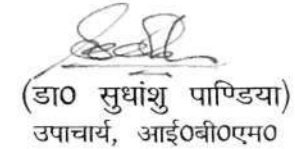 (डा0 सुधांशु पाण्डिया)
उपाचार्य, आई0बी0एम0